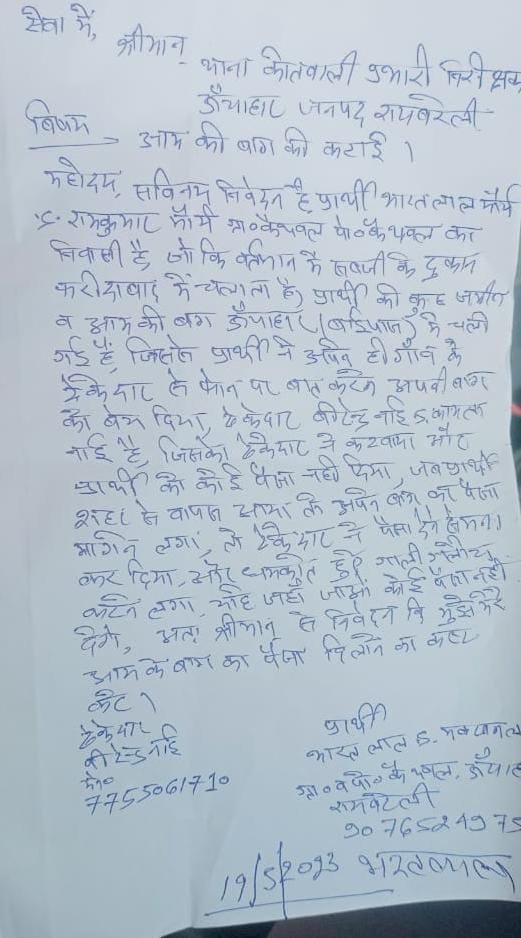 सेवा में,
श्रीमान्
थाना कोतवाली प्रभारी निरीक्षक
ऊँचाहार जनपद रायबरेली
विषय - आम की बाग की कटाई ।
महोदय, सविनय निवेदन है, प्रार्थी भारत लाल मौर्य
S. रामकुमार मौर्य ग्रा० कैथवल पो० कैथवल का
निवासी है, जो कि वर्तमान में सब्जी के दुकान
फरीदाबाद में चलाता है, प्रार्थी की कुछ जमीन
व आम की बाग ऊँचाहार में चली
गई है, जिसने प्रार्थी ने अपने ही गाँव के
ठेकेदार से फोन पर बात करके अपनी बाग
को बेच दिया, ठेकेदार बीरेन्द्र नाई S.
नाई है, जिसको ठेकेदार ने करवाया और
प्रार्थी को कोई पैसा नहीं दिया, जब प्रार्थी
शहर से वापस आया तो अपने बाग का पैसा
मांगने लगा, तो ठेकेदार ने पैसा देने से मना
कर दिया, और धमकाते हुए गाली गलौज
करने लगा, चाहे जहाँ जाओ कोई पैसा नहीं
देंगे, अतः श्रीमान से निवेदन कि मुझे मेरे
आम के बाग का पैसा दिलाने का कष्ट
करें ।
प्रार्थी
भारत लाल S.
ग्रा० व पो० कैथवल, ऊँचाहार
रायबरेली
9076524975
ठेकेदार
बीरेन्द्र नाई
मो०
7755061710
19/5/2023 भारतलाल